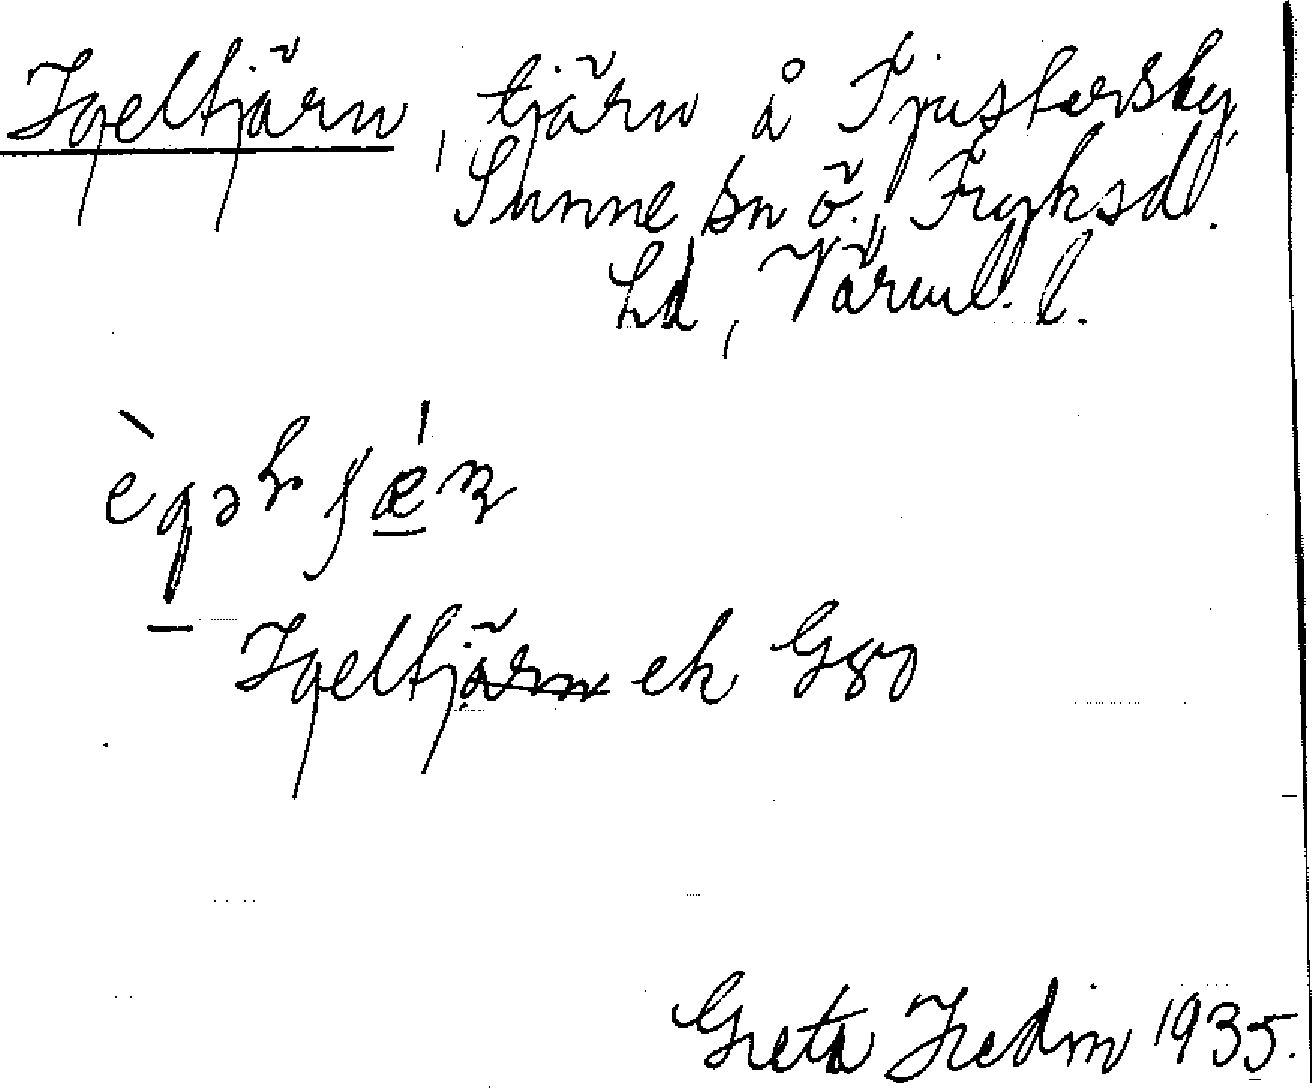 Igeltjärn, tjärn å Tjustersby,
Sunne sn ö., Fryksd.
hd, Värml. l.
Igeltjärn ek G80
Greta Hedin 1935.